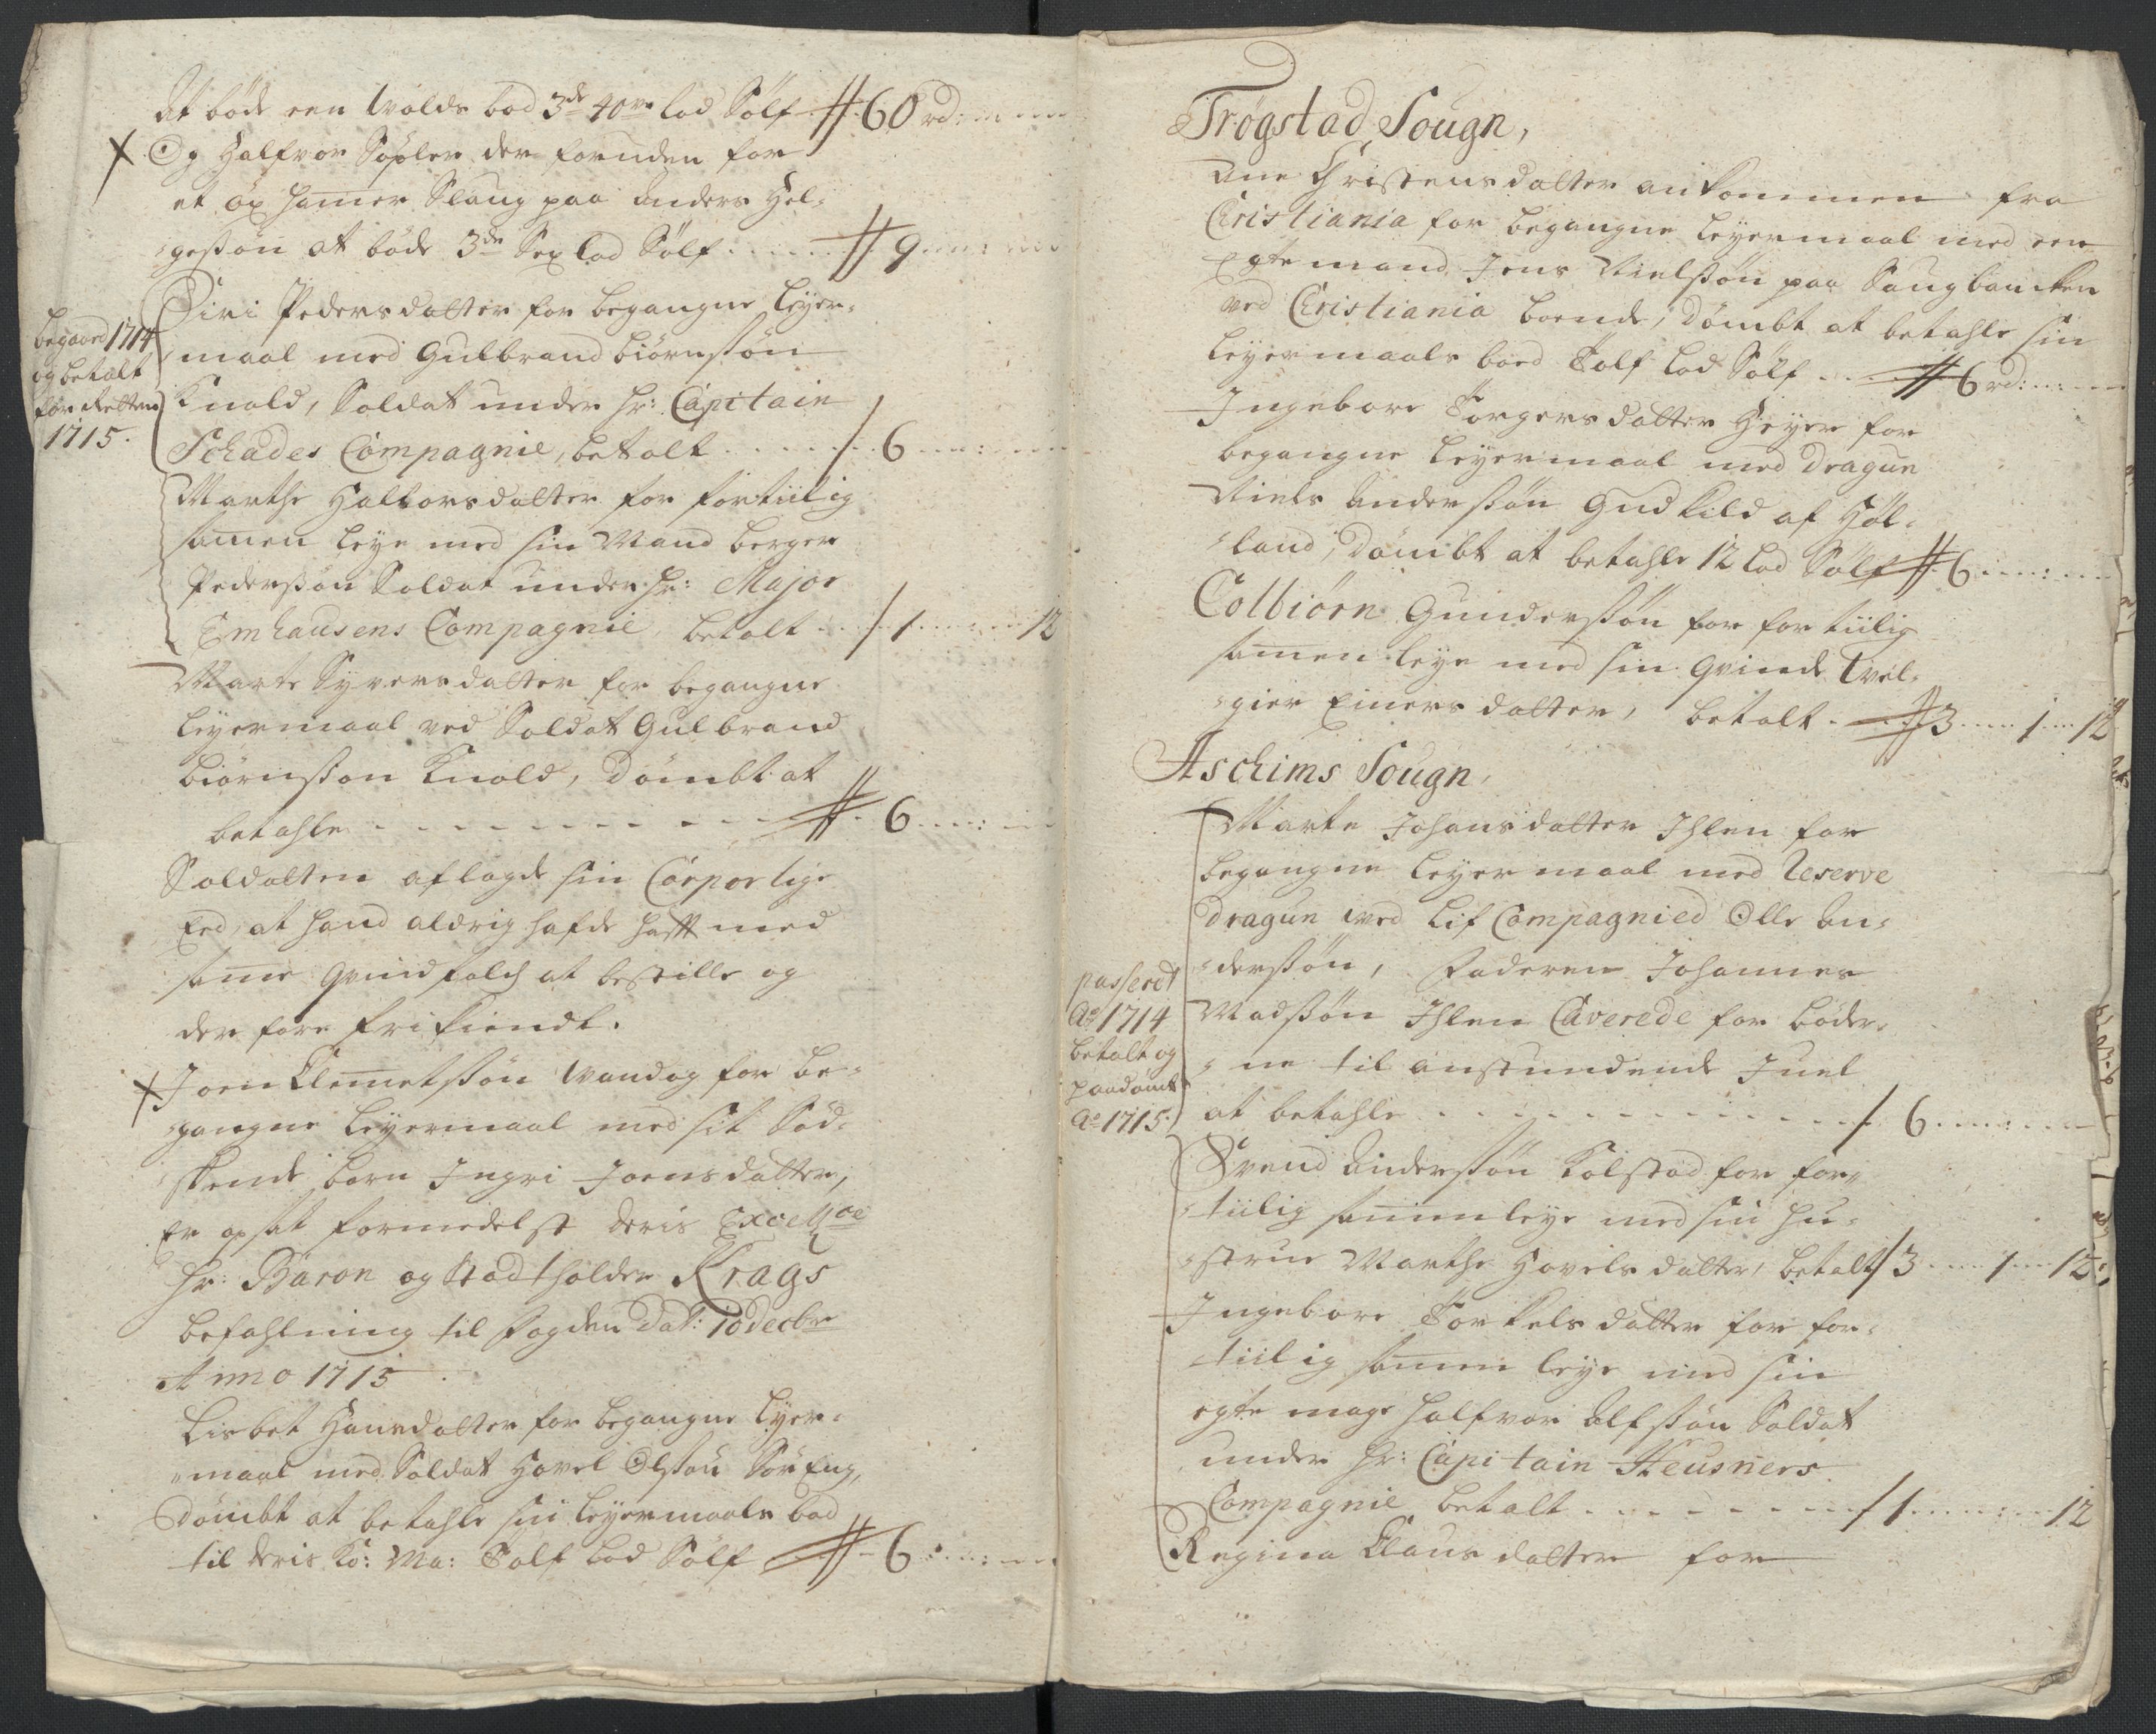 At böde een Volds bod 3de 40ve lod Sölf # 60 rd:
X Og Halfvor Sopler der foruden for
et öx hamer Slaug paa Anders Hel-
gessön at böde 3de Sex lod Sölf # 9
Siri Pedersdatter for begangne Leyer-
maal med Gulbrand Biörnssön
Knold, Soldat under Hr: Capitain
Schades Compagnie, betalt / 6
begaaed 1714
og betalt
for Retten
1715.
Marthe Halvorsdatter for fortiilig
samen leye med sin Mand Berger
Pederssön Soldat under Hr: Major
Emhausens Compagnie betalt / 1 12
Marte Syversdatter for begangne
Leyermaal ved Soldat Gulbrand
Biörnsson Knold, dömbt at
betahle # 6
Soldatten aflagde sin Corporlige
Eed, at hand aldrig hafde hafft med
same qvindfolch at bestille og
der fore frikiendt.
X Joen Clemetssön Vandog for be-
gangne Leyermaal med sit Sød-
skende barn Ingri Joensdatter,
Er opsat formedelst deris Excellce
Hr: Baron og Stadtholder Krags
befahlning til fogden Dat: 10 decbr
Anno 1715
Lisbet Hansdatter for begangne Lyer-
maal med Soldat Hovel Olssön Sör Eng,
dömbt at betahle sin leyermaals bod
til deris Ko: Ma: Tolf Lod Sölf # 6
Trögstad Sougn,
Ane Christensdatter ankommen fra
Cristiania for begangne leyermaal med een
Egte mand Jens Nielssön paa Saugbancken
ved Cristiania boende, dömbt at betahle sin
leyermaals boed Tolf lod Sölf # 6 rd:
Ingebore Torgersdatter Heyer for
begangne leyermaal med dragun
Niels Anderssön Gudkild af Höl-
land, dömbt at betahle 12 Lod Sölf # 6
Colbiörn Gunderssön for for tiilig
samen leye med sin qvinde Vel-
gier Einersdatter, betalt # 3 1 12
Aschims Sougn,
Marte Johansdatter Ihlen for
begangne leyermaal med Reserve
dragun ved Lif Compagnied Olle An-
derssön, Faderen Johannes
Madssön Ihlen Caverede for böder-
ne til anstundende Juel
at betahle / 6
passeret
Ao 1714
betalt og
paadömt
Ao 1715.
Svend Anderssön Kolstad for for-
tiilig samenleye med sin Hu-
strue Marthe Hovelsdatter, betalt / 3 1 12
Ingebore Torkelsdatter for for-
tiilig samen leye med sin
egte mage Halfvor Alfssön Soldat
under Hr: Capitain Heusners
Compagnie betalt / 1 12
Regina Clausdatter for